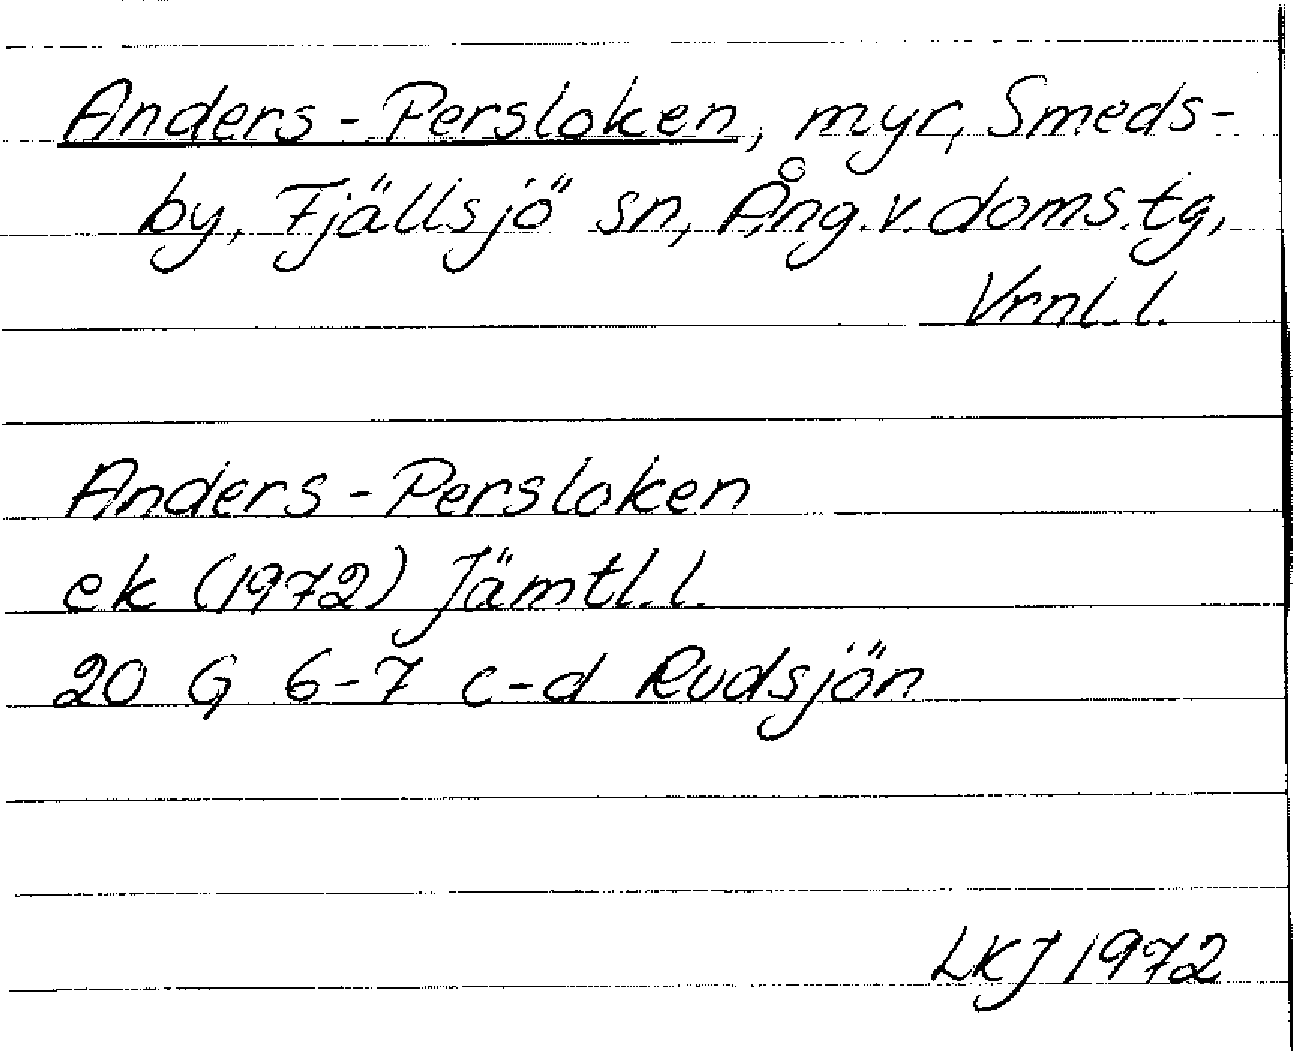 Anders-Persloken, myr, Smeds-
by, Fjällsjö sn, Ång. v. doms. tg,
Vrnl. l.
Anders-Persloken
ek (1972) Jämtl. l.
20 G 6-7 c-d Rudsjön
LKJ 1972